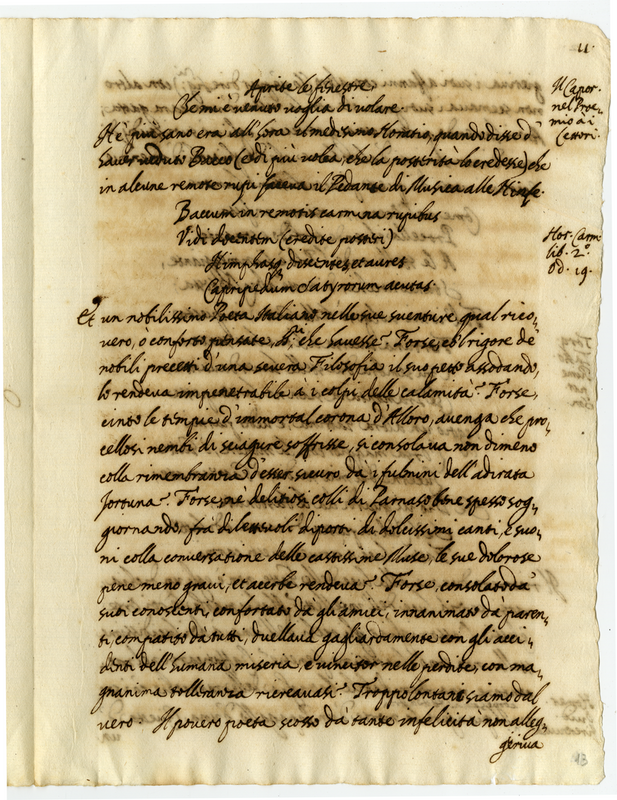 11.
Aprite le finestre,
Che mi è venuto voglia di volare.
Il Capor.
nel Proe-
mio a i
Lettori.
Nè più sano era all'hora il medesimo Horatio, quando disse d'
haver veduto Bacco (e di più volea, che la posterità lo credesse) che
in alcune remote rupi faceva il Pedante di Musica alle Ninfe.
Bacum in remotis carmina rupibus
Vidi docentem (credite posteri)
Nimphasq. discentes, et aures
Capripedum Satyrorum acutas.
Hor. Carm.
lib. 2.º
Od. 19.
Et un nobilissimo Poeta Italiano nelle sue sventure qual rico-
vero, ò conforto pensate, che havesse? Forse, co'l rigore de
nobili precetti d'una severa Filosofia il suo petto assodando,
lo rendeva impenetrabile à i colpi delle calamità? Forse,
cinto le tempie d'immortal corona d'Alloro, avenga che pro-
cellosi nembi di sciagure soffrisse, si consolava non dimeno
colla rimembranza d'esser sicuro da i fulmini dell'adirata
fortuna? Forse, ne deliziosi colli di Parnaso bene spesso sog-
giornando, frà dilettevoli diporti di dolcissimi canti, e suo-
ni colla conversatione delle castissime Muse, le sue dolorose
pene meno gravi, et acerbe rendeva? Forse, consolato dà
suoi conoscenti, confortato da gli amici, innanimato da paren-
ti, compatito da tutti, duellava gagliardamente con gli acci-
denti dell'humana miseria, e vincitor nelle perdite, con ma-
gnanima tolleranza ricreavasi? Troppo lontani siamo dal
vero. Il povero poeta scosso dà tante infelicità non alleg-
geriva
13